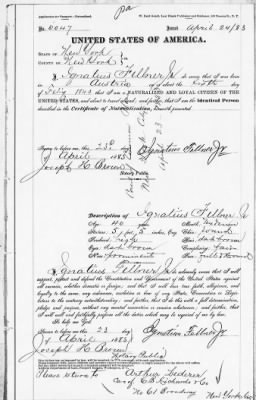 No. 0047 Issued April 24/83
UNITED STATES OF AMERICA.
STATE OF New York
COUNTY OF New York
I Ignatius Fellner Jr do swear that I was born
in Austria on or about the day
of July 1842 that I am a NATURALIZED AND LOYAL CITIZEN OF THE
UNITED STATES, and about to travel abroad; and further, that I am the Identical Person
described in the Certificate of Naturalization
Sworn to before me this 23d
of April 1883
Joseph H. Brown
Notary Public
Ignatius Fellner Jr
Description of Ignatius Fellner Jr
Age: 40 years
Mouth: medium
Stature: 5 feet 5 inches, Eng.
Chin: round
Forehead: high
Hair: dark brown
Eyes: dark brown
Complexion: fair
Nose: prominent
Face: full & round
I Ignatius Fellner Jr do solemnly swear that I will
support, protect and defend the Constitution and Government of the United States against
all enemies, whether domestic or foreign; and that I will bear true faith, allegiance, and
loyalty to the same, any ordinance, resolution or law of any State, Convention or Legis-
lature to the contrary notwithstanding; and further, that I do this with a full determination,
pledge and purpose, without any mental reservation or evasion whatsoever; and further, that
I will well and faithfully perform all the duties which may be required of me by law.
So help me God.
Sworn to before me this 23 day
of April 1883
Joseph H. Brown
Notary Public
Ignatius Fellner Jr
Please return to Arthur Lederer
Care of C. B. Richards & Co
No 61 Broadway
New York